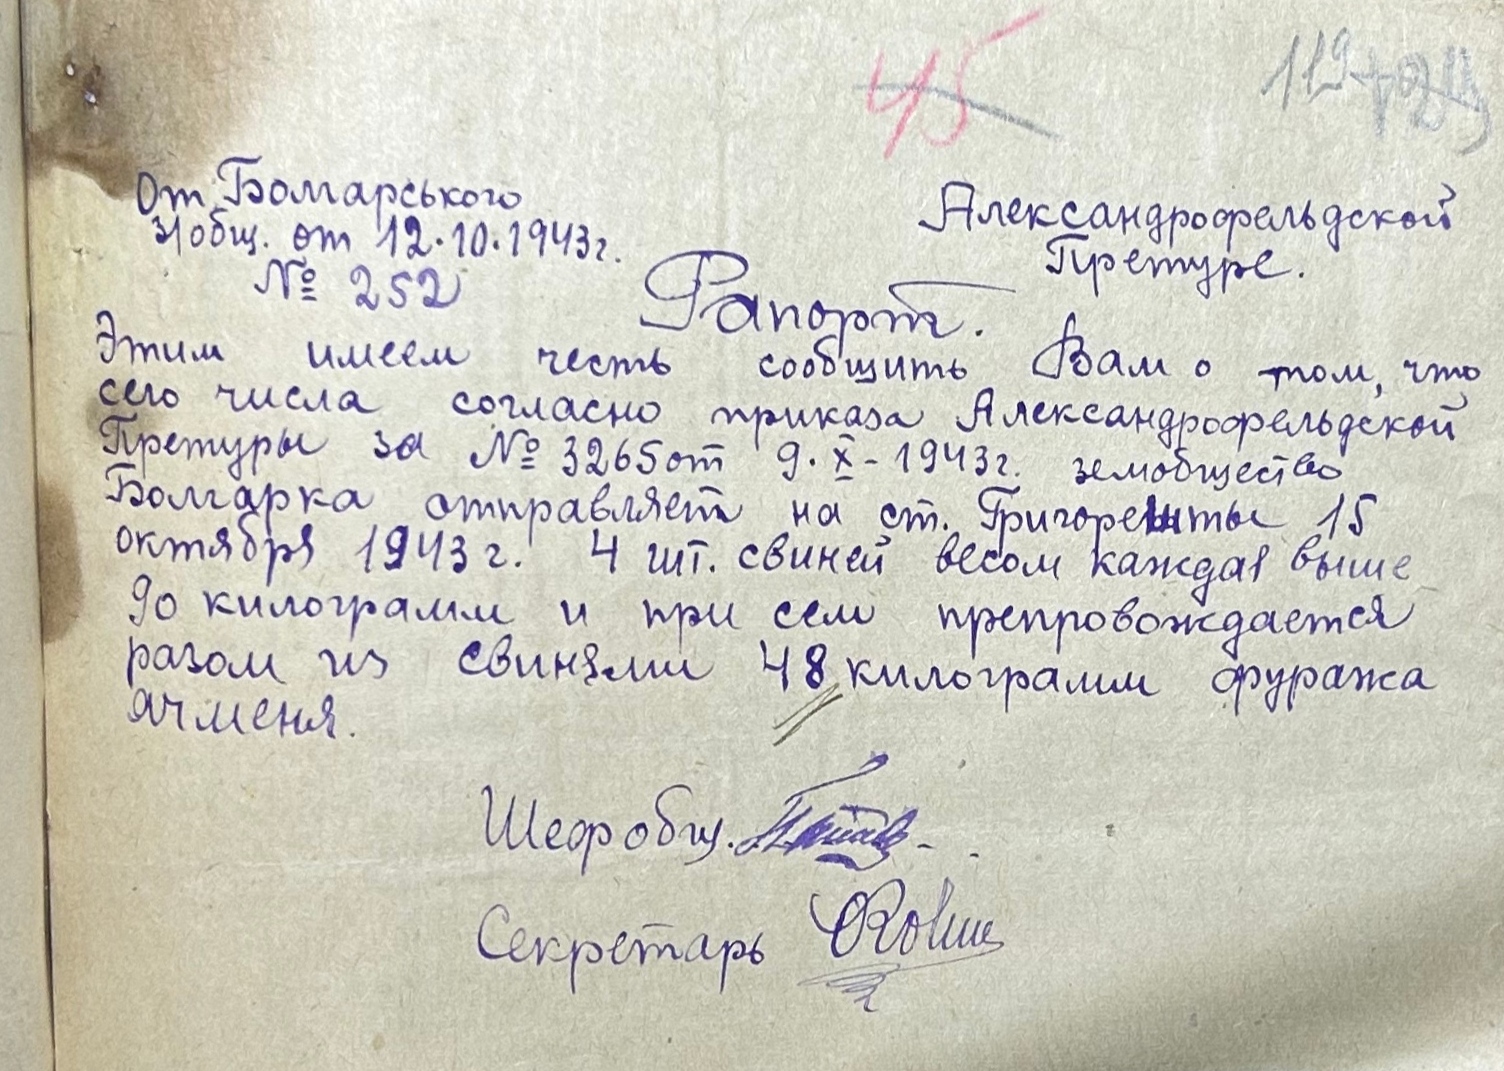 45
119
От Болгарського
з/общ. от 12.10.1943г.
№ 252
Александрофельдской
Претуре.
Рапорт.
Этим имеем честь сообщить Вам о том, что
сего числа согласно приказа Александрофельдской
Претуры за № 3265 от 9.X-1943г. земобщество
Болгарка отправляет на ст. Григорешты 15
октября 1943 г. 4 шт. свиней весом каждая выше
90 килограмм и при сем препровождается
разом из свинями 48 килограмм фуража
ячменя.
Шеф общ.
Секретарь